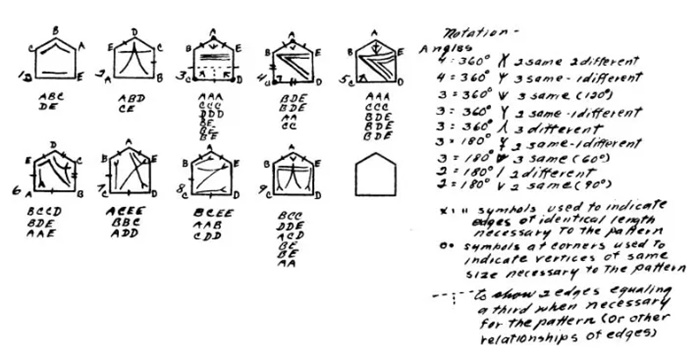 Notation -
Angles
4 = 360° 2 same 2 different
4 = 360° 3 same - 1 different
3 = 360° 3 same (120°)
3 = 360° 2 same - 1 different
3 = 360° 3 different
3 = 180° 2 same - 1 different
3 = 180° 3 same (60°)
2 = 180° 2 different
2 = 180° 2 same (90°)
symbols used to indicate
edges of identical length
necessary to the pattern
symbols at corners used to
indicate vertices of same
size necessary to the pattern
to show 2 edges equaling
a third when necessary
for the pattern (or other
relationships of edges)
B C A D E 1
D C E A B 2
A B E C D 3
A B E C D 4
A B E D C 5
ABC
DE
ABD
CE
AAA
CCC
DDD
BE
BE
BE
BDE
BDE
AA
CC
AAA
CCC
BDE
BDE
BDE
D E C A B 6
A B E C D 7
A B E C D 8
A B E C D 9
BCCD
BDE
AAE
ACEE
BBC
ADD
BCEE
AAB
CDD
BCC
DDE
ACD
BE
BE
AA